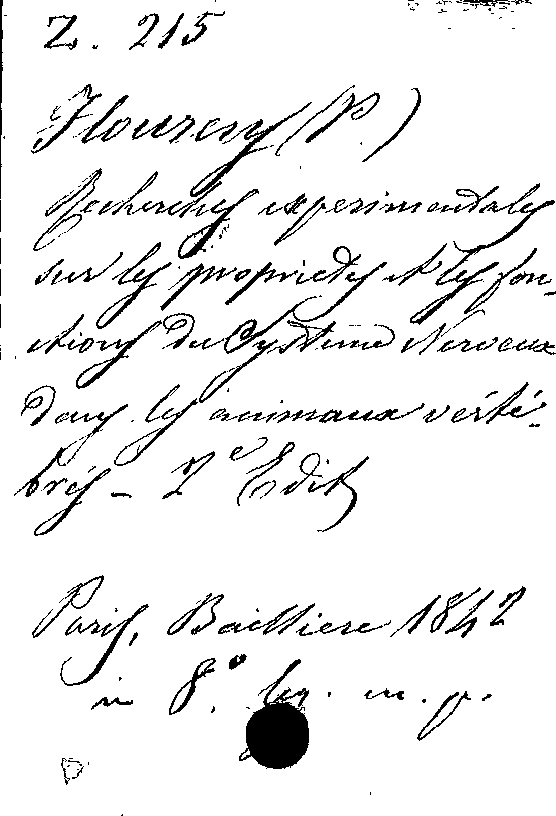 Z. 215
Flourens (P.)
Recherches experimentales
sur les proprietes et les fon-
ctions du Système Nerveux
dans les animaux verté-
brés – 2e Edit
Paris, Bailliere 1842
in 8°. leg. m. p.